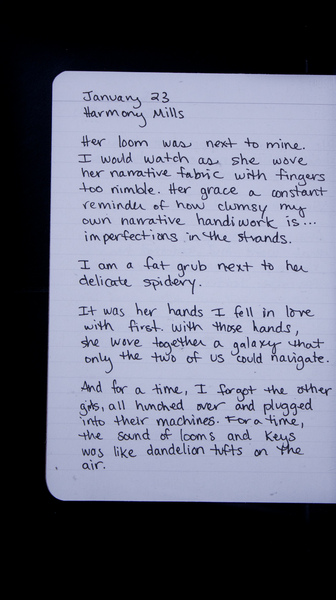 January 23
Harmony Mills
Her loom was next to mine.
I would watch as she wove
her narrative fabric with fingers
too nimble. Her grace a constant
reminder of how clumsy my
own narrative handiwork is...
imperfections in the strands.
I am a fat grub next to her
delicate spidery.
It was her hands I fell in love
with first. With those hands,
she wove together a galaxy that
only the two of us could navigate.
And for a time, I forgot the other
girls, all hunched over and plugged
into their machines. For a time,
the sound of looms and keys
was like dandelion tufts on the
air.